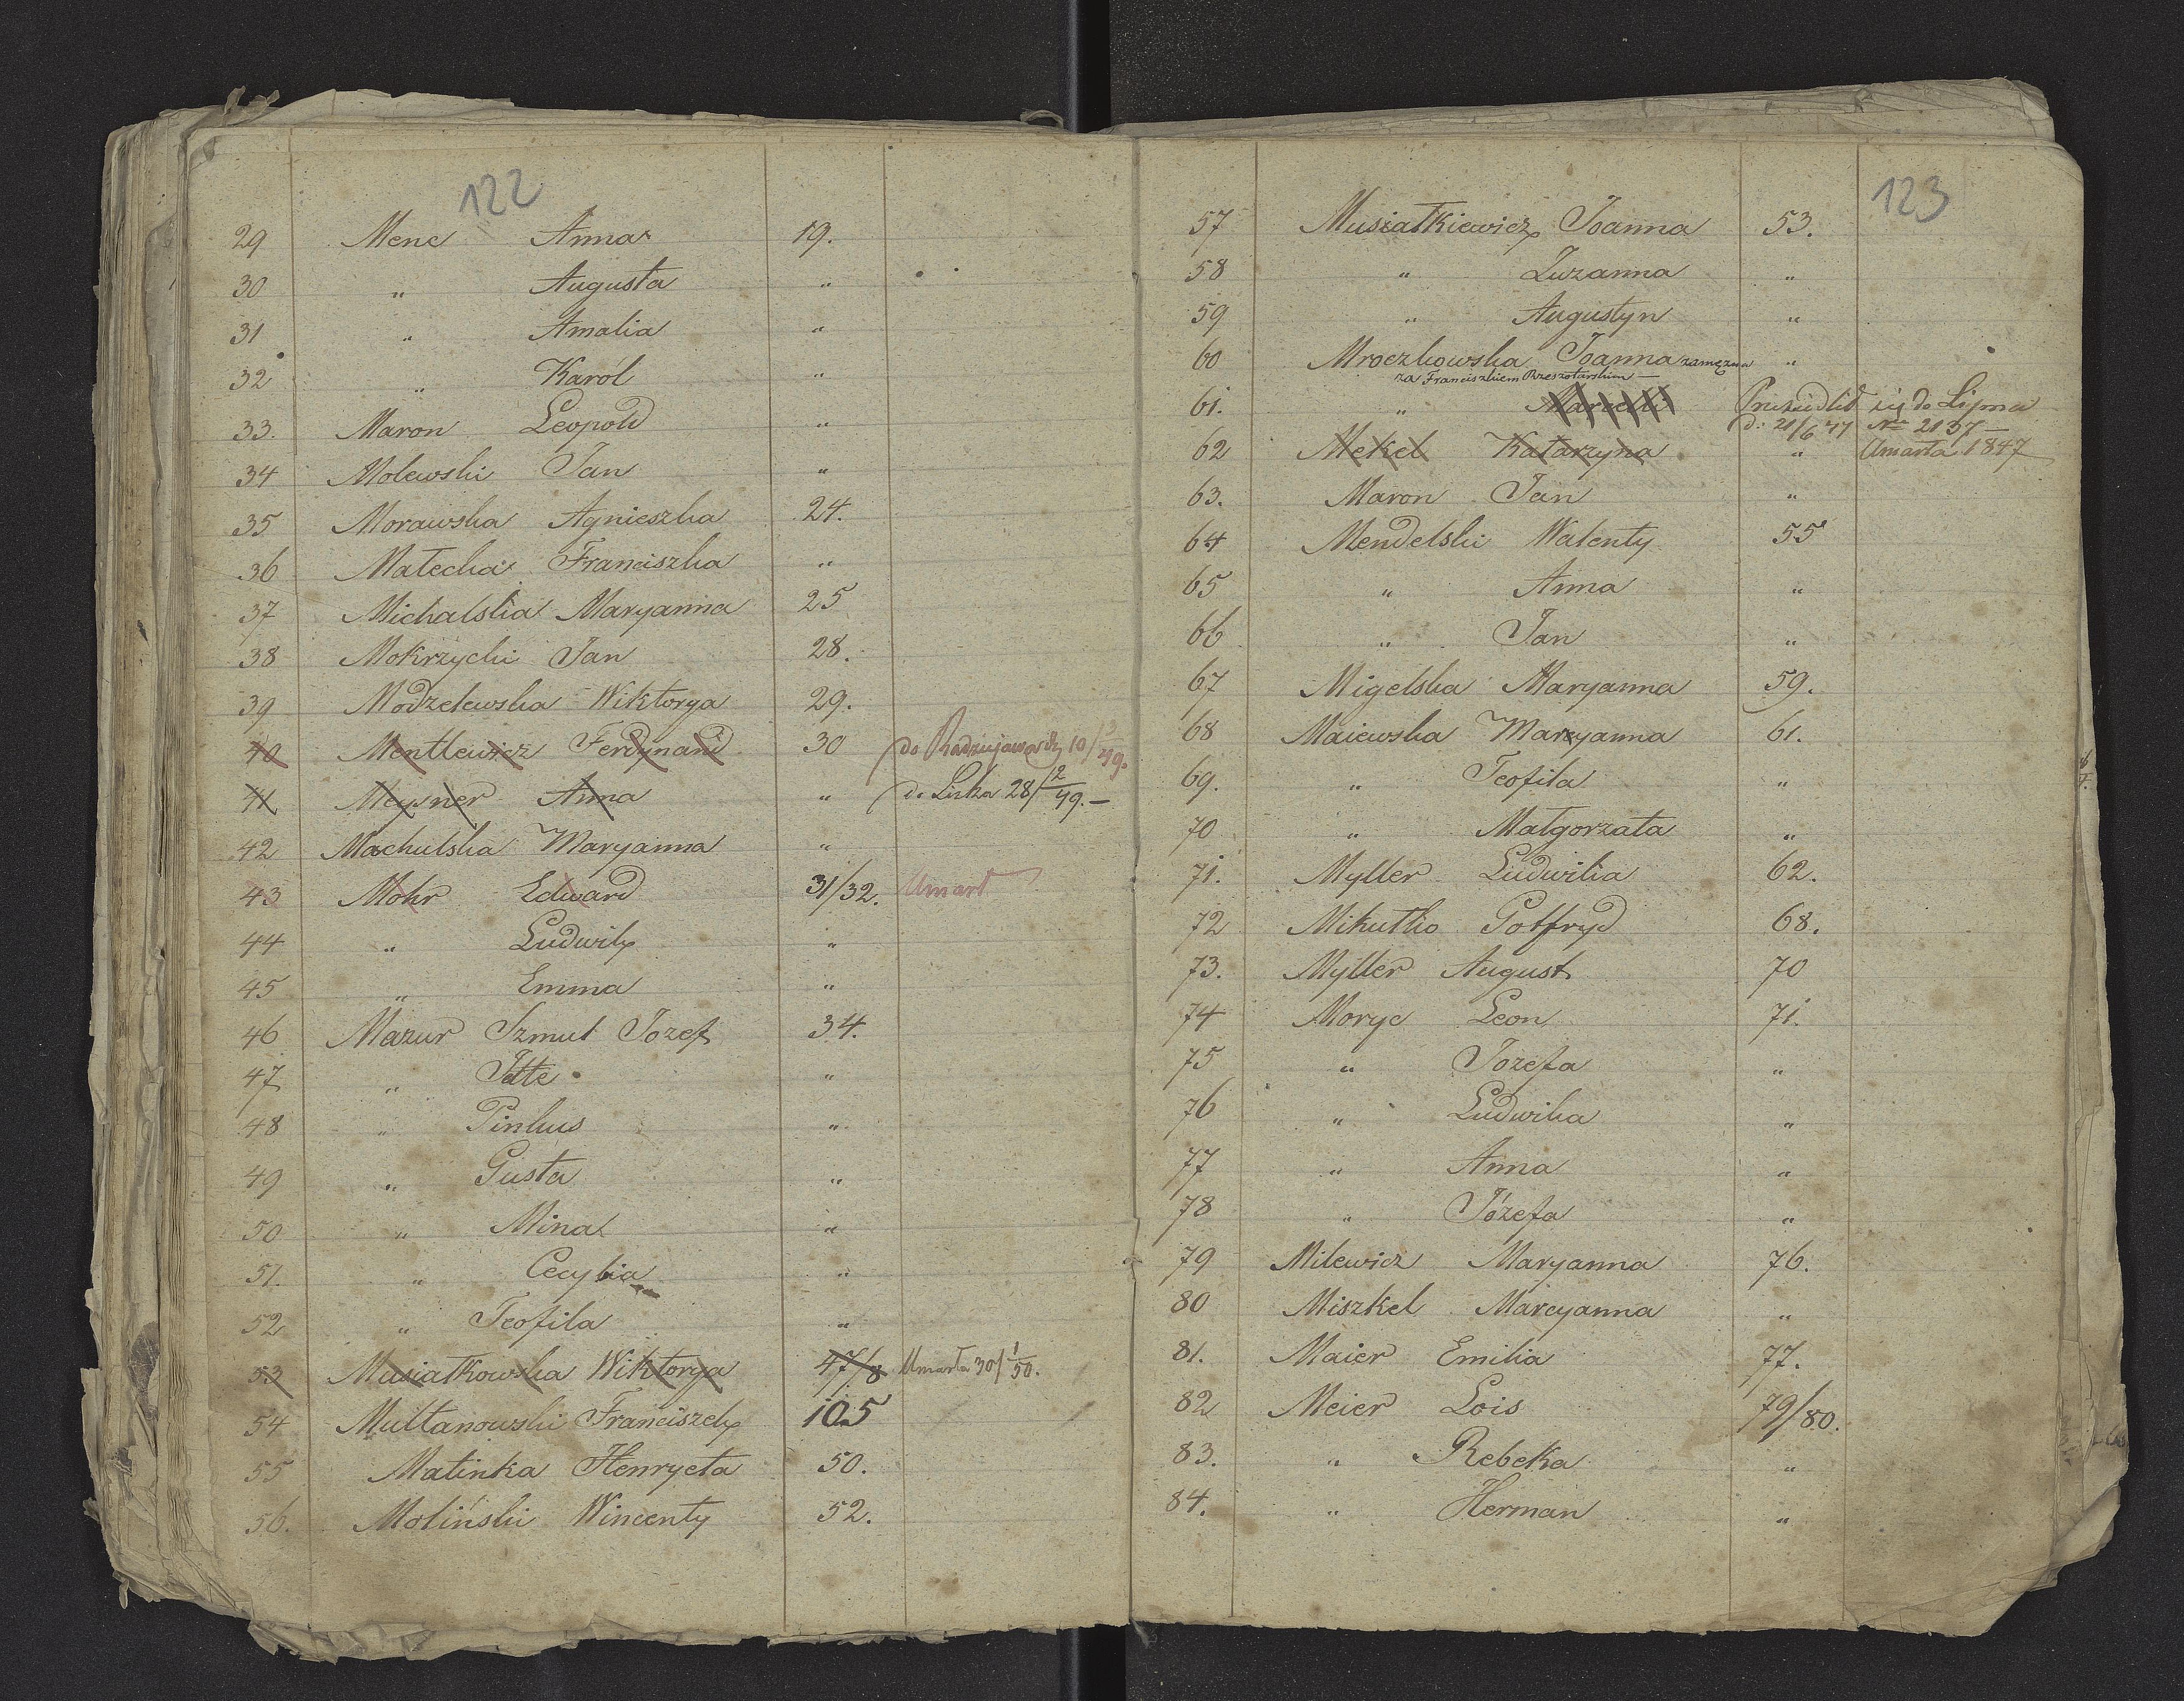 122
29 Menc Anna 19.
30 „ Augusta „
31 „ Amalia „
32 „ Karól „
33. Maron Leopold „
34 Molewski Jan „
35 Morawska Agnieszka 24.
36 Małecka Franciszka „
37 Michalska Maryanna 25
38 Mokrzycki Jan 28.
39 Modzelewska Wiktorya 29.
40 Mentlewicz Ferdynand 30 do Radziejowa 10/3 49.
41 Meysner Anna „ do 28/2 49. –
42 Machulska Maryanna „
43 Mohr Edward 31/32. Umarł
44 „ Ludwik „
45 „ Emma „
46 Mazur Szmul Jozef 34.
47 „ Itte „
48 „ Pinkus „
49 „ Gusta „
50 „ Mina „
51. „ Cecylia „
52 „ Teofila „
53 Musiatkowska Wiktorya 47/8 Umarła 30/1 50.
54 Multanowski Franciszek 105
55 Malinka Henryeta 50.
56. Moliński Wincenty 52.
123
57 Musiałkiewicz Joanna 53.
58 „ Zuzanna „
59 „ Augustyn „
60 Mroczkowska Joanna zamężna „
za Franciszkiem Rzeszotarskim —
61. „ Marcelli Przesiedlił się do Lipna
d: 21/6 47 No 2137 —
62 Mekel Katarzyna „ Umarła 1847
63. Maron Jan „
64 Mendelski Walenty 55
65 „ Anna „
66 „ Jan „
67 Migelska Maryanna 59.
68 Maiewska Maryanna 61.
69. „ Teofila „
70 „ Małgorzata „
71. Myller Ludwika 62.
72 Mikutko Gotfryd 68.
73. Myller August 70
74 Moryc Leon 71.
75 „ Jozefa „
76 „ Ludwika „
77 „ Anna „
78 „ Józefa „
79 Milewicz Maryanna 76.
80 Miszkel Marcyanna „
81. Maier Emilia 77.
82 Meier Lois 79/80.
83. „ Rebeka „
84. „ Herman „